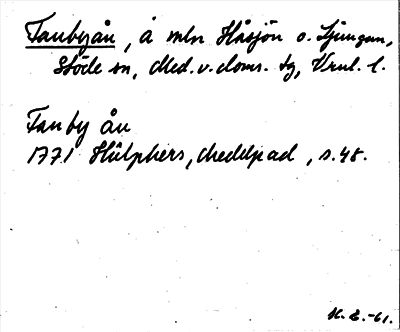 Fanbyån, å mln Håsjön o. Ljungan,
Stöde sn, Med. v. doms. tg, Vrnl. l.
Fanby ån
1771 Hülphers, Medelpad, s. 48.
H. E. -61.